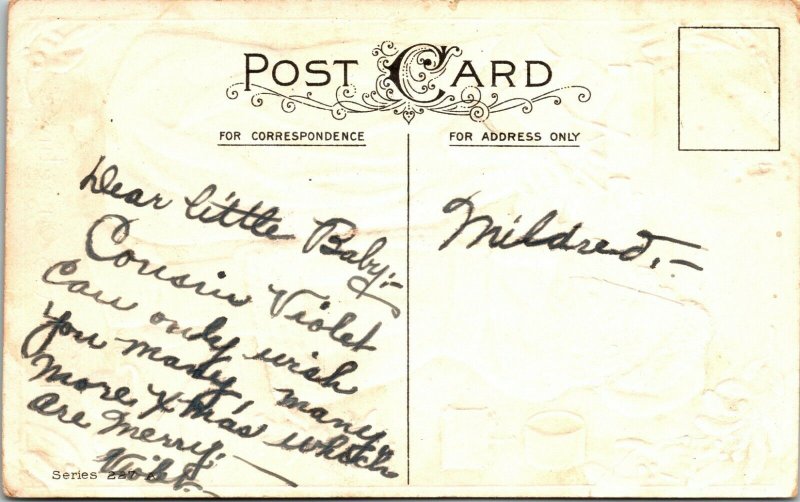 POST CARD
FOR CORRESPONDENCE
FOR ADDRESS ONLY
Dear little Baby:-
Cousin Violet
can only wish
you many, many
more X-mas which
are merry.
Violet.-
Mildred,-
Series 227